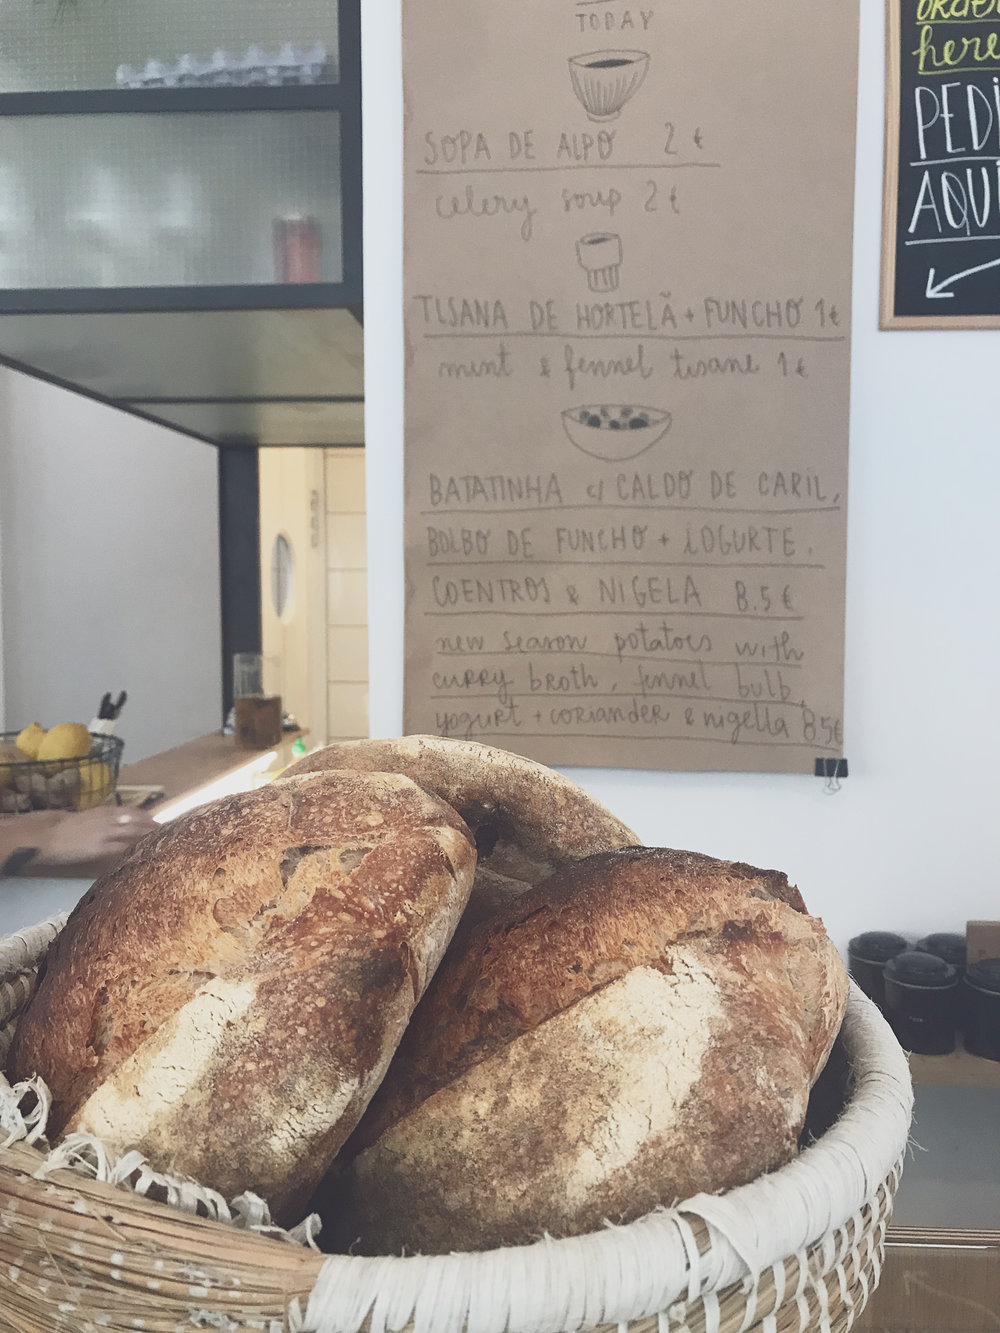 TODAY
SOPA DE AIPO 2 €
celery soup 2 €
TISANA DE HORTELÃ + FUNCHO 1 €
mint & fennel tisane 1 €
BATATINHA c/ CALDO DE CARIL,
BOLBO DE FUNCHO + IOGURTE,
COENTROS & NIGELA 8.5 €
new season potatoes with
curry broth, fennel bulb,
yogurt + coriander & nigella 8.5€
order
here
PEDI
AQUI